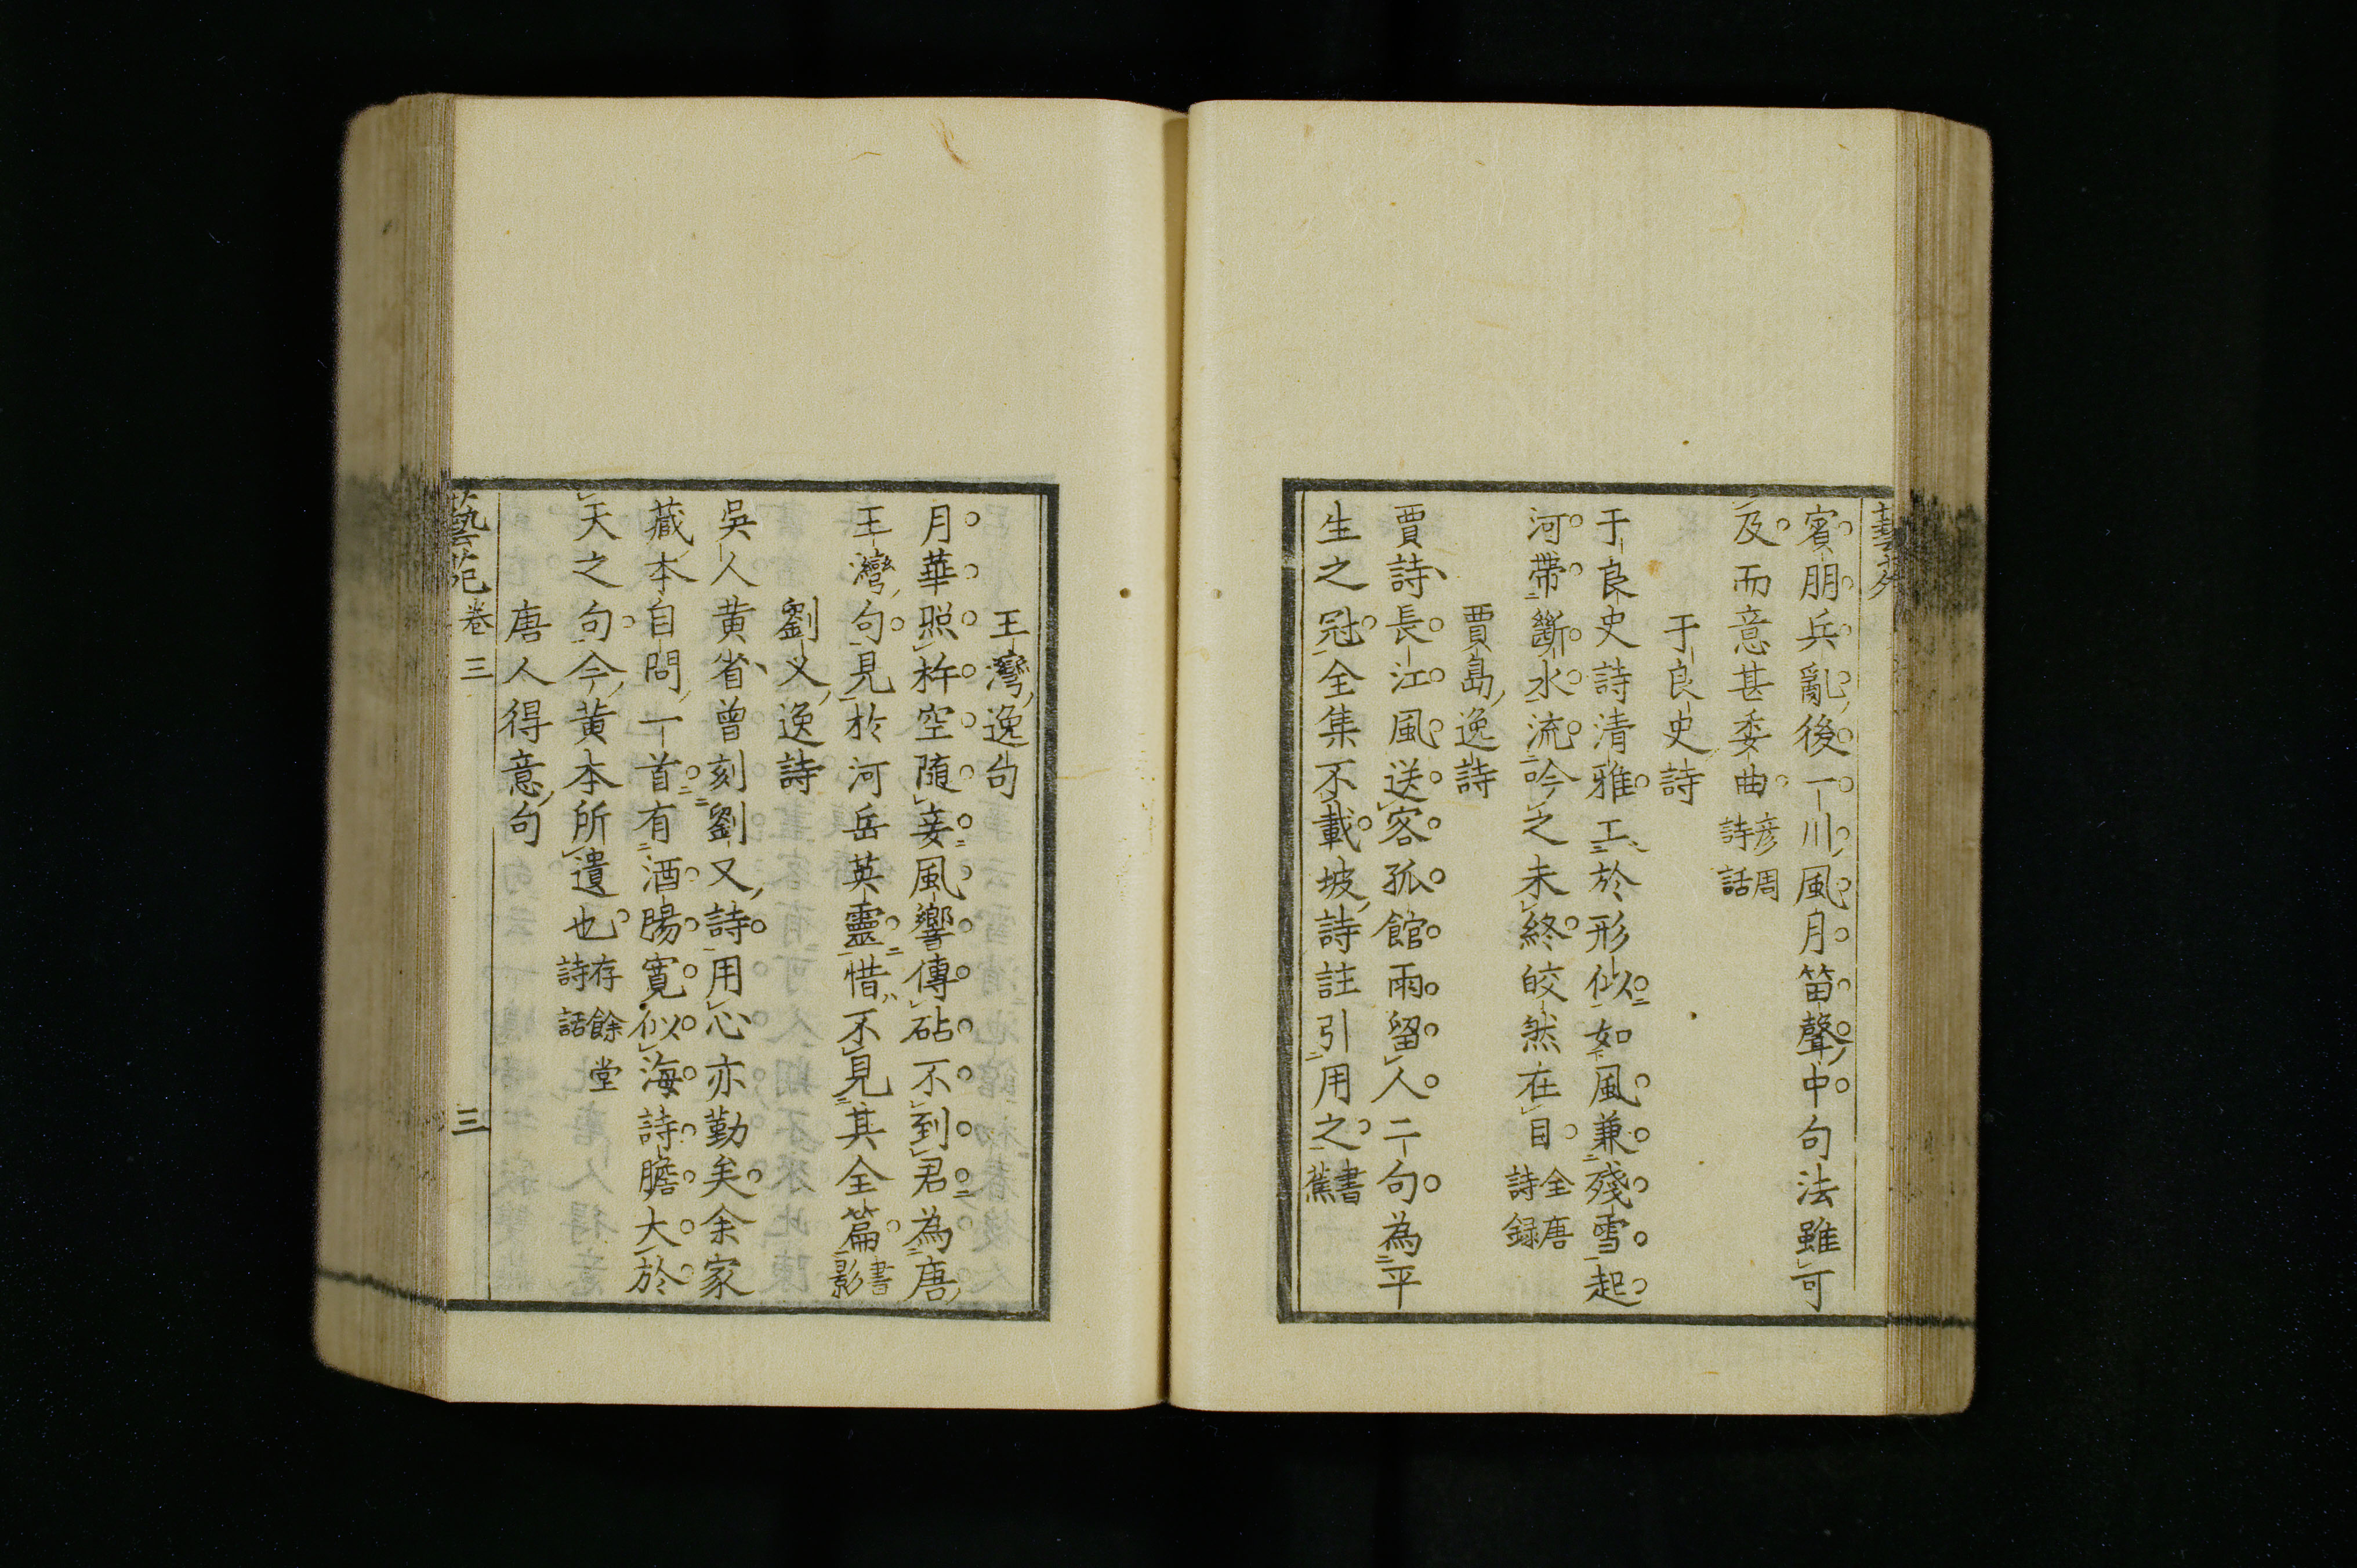 賓朋兵亂後一川風月笛聲中句法雖可
及而意甚委曲彦周詩話
于良史詩
于良史詩清雅工於形似如風兼殘雪起
河帶斷水流吟之未終皎然在目全唐詩録
賈島逸詩
賈詩長江風送客孤館雨留人二句為平
生之冠全集不載坡詩註引用之書蕉
王灣逸句
月華照杵空隨妾風響傳砧不到君為唐
王灣句見於河岳英靈惜不見其全篇書影
劉乂逸詩
吳人黄省曾刻劉叉詩用心亦勤矣余家
藏本自問一首有酒腸寛似海詩膽大於
天之句今黄本所遺也存餘堂詩話
唐人得意句
藝苑 卷三 三